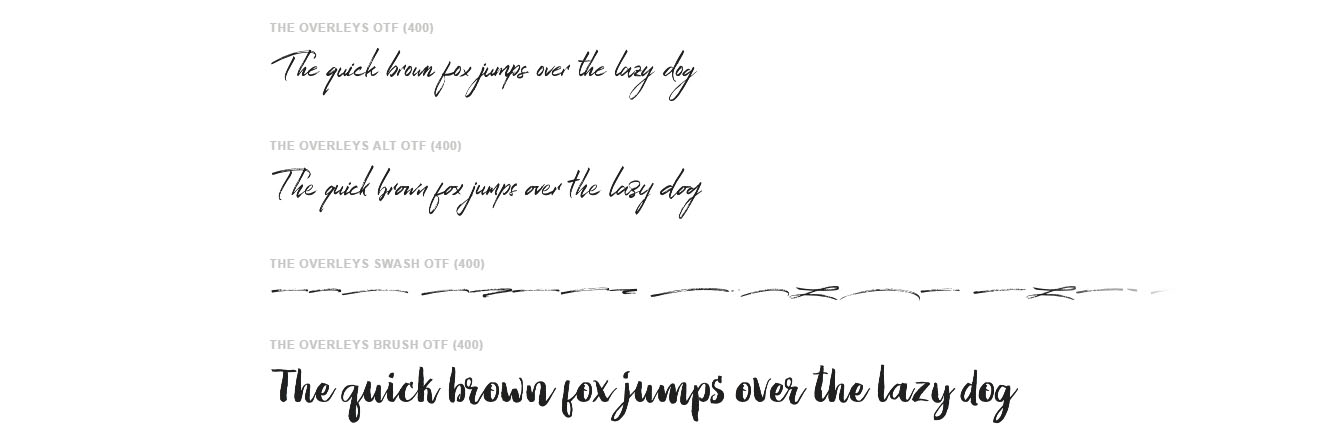 THE OVERLEYS OTF (400)
The quick brown fox jumps over the lazy dog
THE OVERLEYS ALT OTF (400)
The quick brown fox jumps over the lazy dog
THE OVERLEYS SWASH OTF (400)
THE OVERLEYS BRUSH OTF (400)
The quick brown fox jumps over the lazy dog